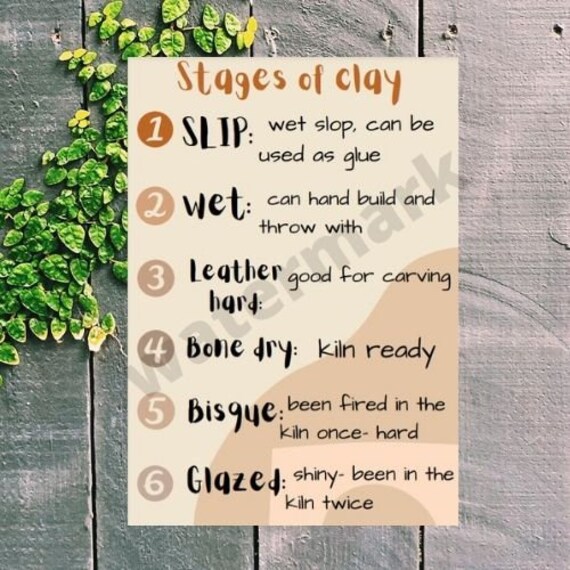 Stages of clay
1 SLIP: wet slop, can be
used as glue
2 Wet: can hand build and
throw with
3 Leather good for carving
hard:
4 Bone dry: kiln ready
5 Bisque: been fired in the
kiln once- hard
6 Glazed: shiny- been in the
kiln twice
watermark